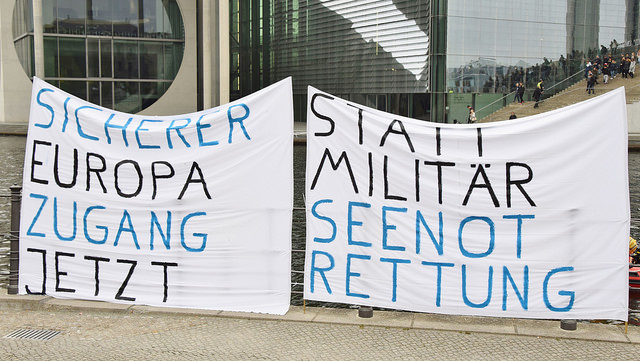 SICHERER
EUROPA
ZUGANG
JETZT
STATT
MILITÄR
SEENOT
RETTUNG